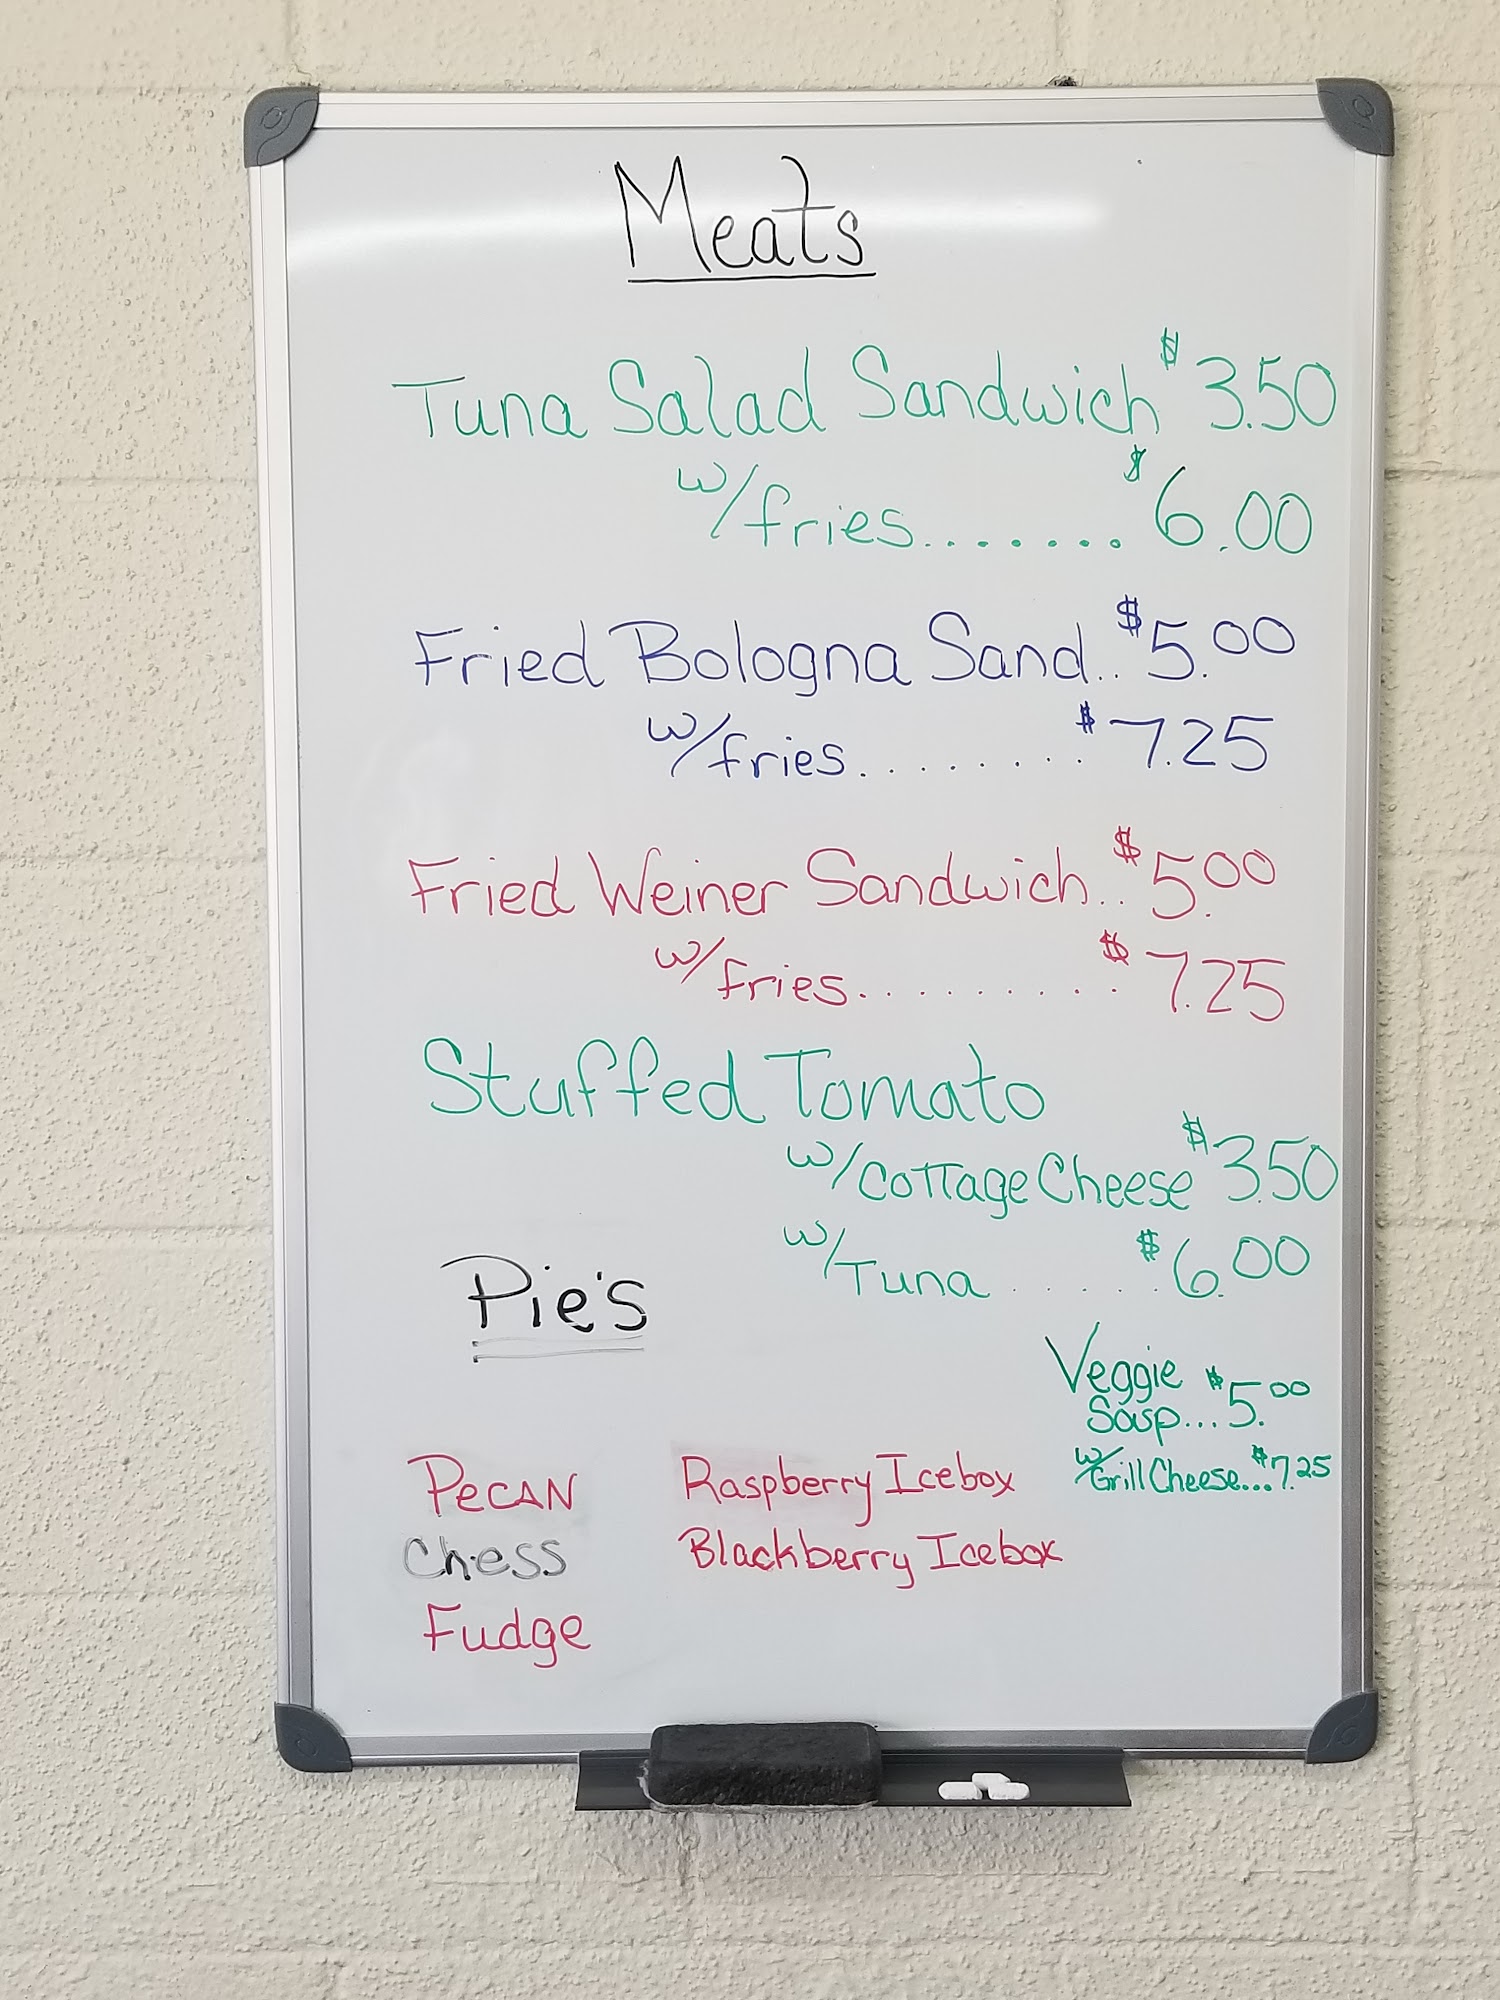 Meats
Tuna Salad Sandwich $3.50
w/fries....... $6.00
Fried Bologna Sand.. $5.00
w/fries........ $7.25
Fried Weiner Sandwich.. $5.00
w/fries......... $7.25
Stuffed Tomato
w/Cottage Cheese $3.50
w/Tuna ...... $6.00
Pie's
Veggie
Soup... $5.00
w/Grill Cheese... $7.25
Pecan Raspberry Icebox
Chess Blackberry Icebox
Fudge